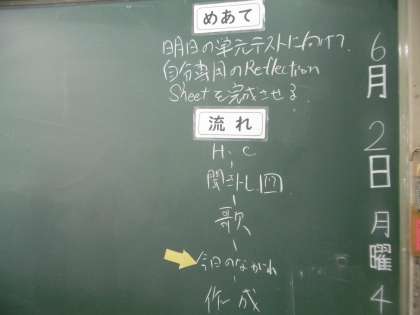 めあて
明日の単元テストに向けて、
自分専用のReflection
Sheetを完成させる。
流れ
H.C
聞き取し回
歌
今日のながれ
作成
6月2日月曜4